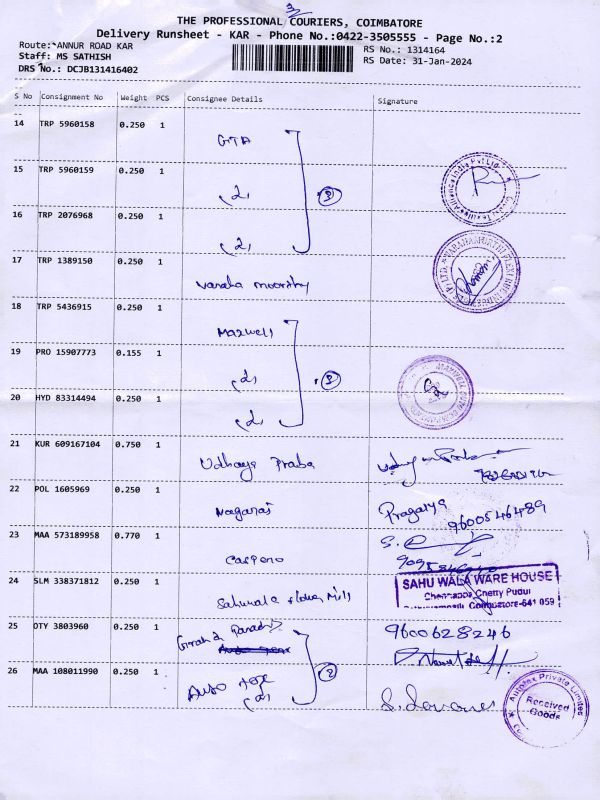 THE PROFESSIONAL COURIERS, COIMBATORE
Delivery Runsheet - KAR - Phone No.:0422-3505555 - Page No.:2
Route: ANNUR ROAD KAR RS No.: 1314164
Staff: MS SATHISH RS Date: 31-Jan-2024
DRS No.: DCJB131416402
S No Consignment No Weight PCS Consignee Details Signature
14 TRP 5960158 0.250 1 GTA
15 TRP 5960159 0.250 1 (2) (3)
16 TRP 2076968 0.250 1 (2)
17 TRP 1389150 0.250 1 Varaha moorthy
18 TRP 5436915 0.250 1 Maxwell
19 PRO 15907773 0.155 1 (2) (3)
20 HYD 83314494 0.250 1 (2)
21 KUR 609167104 0.750 1 Udhaya Praba
22 POL 1605969 0.250 1 Nagaraj Pragatya 9600546489
23 MAA 573189958 0.770 1
SAHU WALA WARE HOUSE
Chennappa Chetty Pudur
Coimbatore-641 059
24 SLM 338371812 0.250 1 Sahuwala Flour Mill
25 DTY 3803960 0.250 1 9600628246
26 MAA 108011990 0.250 1 (2)
Private Limited
Received
Goods